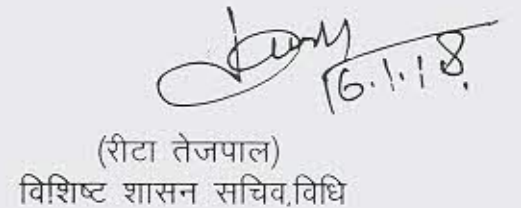 16.1.18.
(रीटा तेजपाल)
विशिष्ट शासन सचिव,विधि